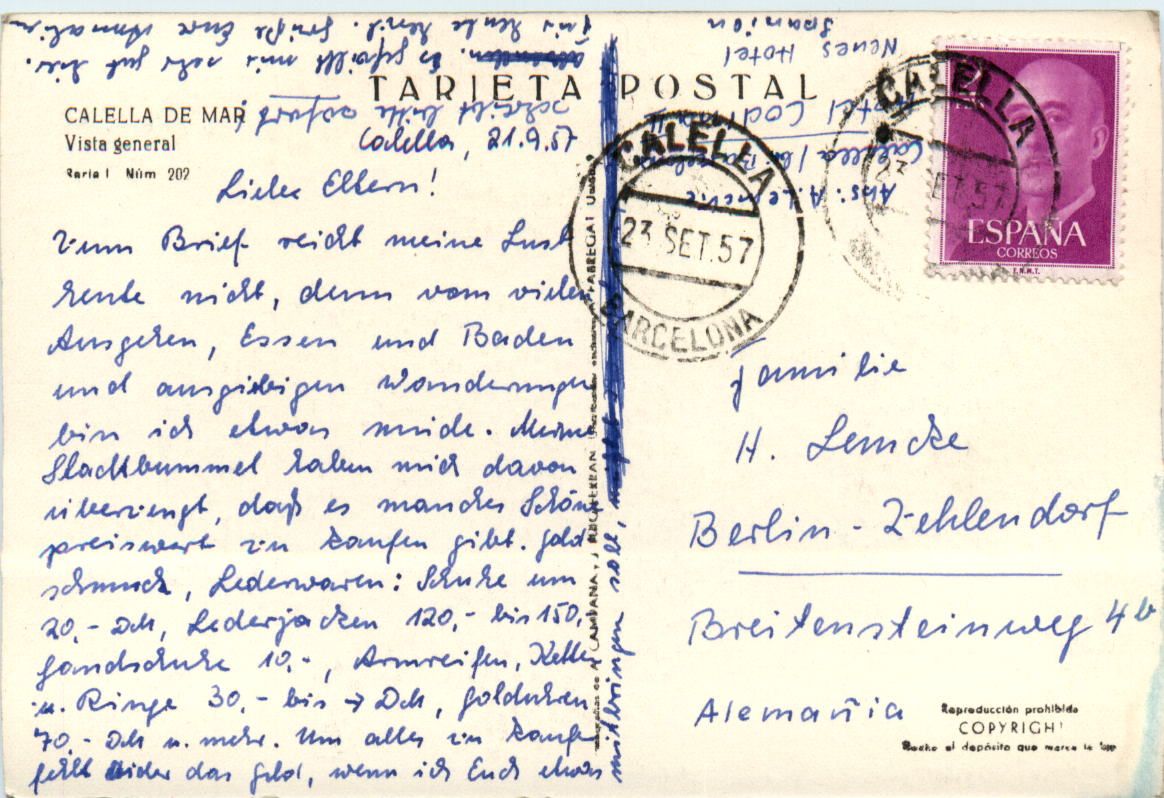 TARJETA POSTAL
CALELLA DE MAR
Vista general
Serie I Núm 202
Calella, 21.9.57
Liebe Eltern!
Zum Brief reicht meine Lust
heute nicht, denn vom vielen
Ausgehen, Essen und Baden
und ausgiebigen Wanderungen
bin ich etwas müde. Meine
Stadtbummel haben mich davon
überzeugt, daß es manches Schöne
preiswert zu kaufen gibt. Gold-
schmuck, Lederwaren: Schuhe um
20,- DM, Lederjacken 120,- bis 150,-
Handschuhe 10,-, Armreifen, Ketten
u. Ringe 30,- bis → DM, Golduhren
70,- DM u. mehr. Um alles zu kaufen
fehlt leider das Geld, wenn ich Euch etwas
mitbringen soll,
schreibt bitte sofort!
Es gefällt mir sehr gut hier.
Für heute herzl. Grüße Eure
Abs. A. Lemcke
Calella
Hotel
Neues Hotel
Spanien
CALELLA
23 SET.57
BARCELONA
CALELLA
23 SET.57
ESPAÑA
CORREOS
F.N.M.T.
Familie
H. Lemcke
Berlin-Zehlendorf
Breitensteinweg 4b
Alemañia
Reproducción prohibida
COPYRIGHT
Hecho el depósito que marca la ley